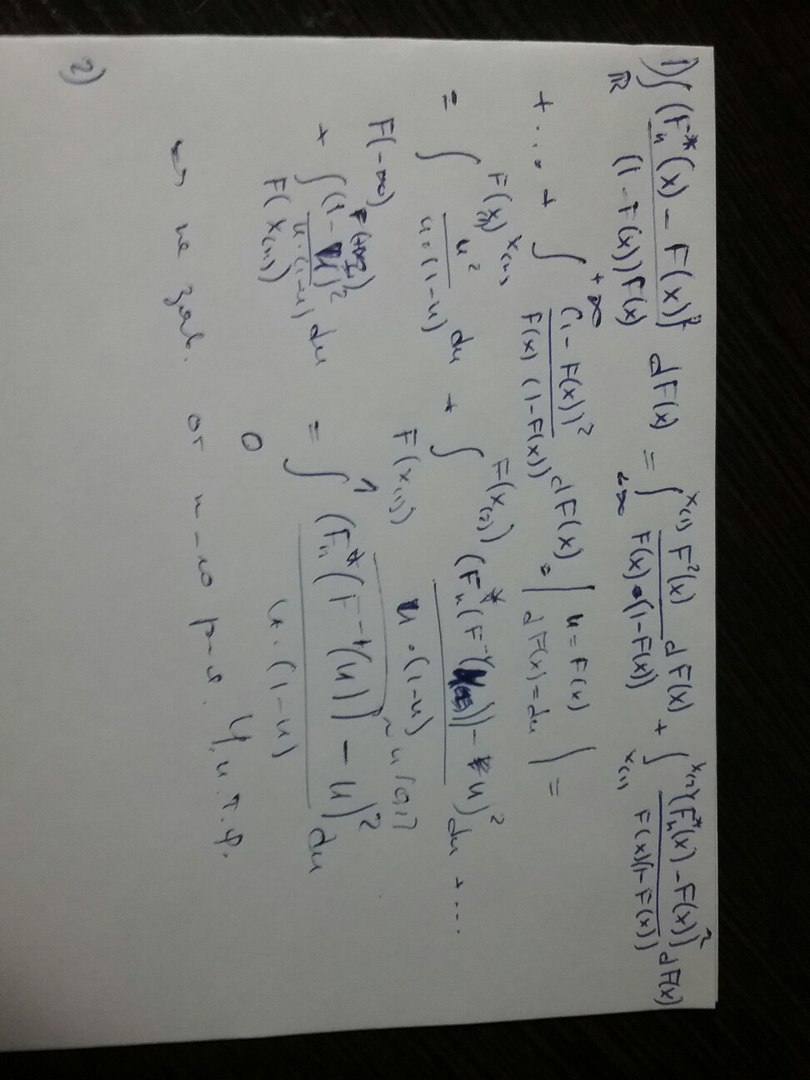 1) ∫_ℝ (F*ₙ(x) − F(x))² / ((1−F(x))F(x)) dF(x) = ∫_{-∞}^{x₍₁₎} F²(x) / (F(x)·(1−F(x))) dF(x) + ∫_{x₍₁₎}^{x₍₂₎} (F*ₙ(x) − F(x))² / (F(x)(1−F(x))) dF(x)
+ ... + ∫_{x₍ₙ₎}^{+∞} (1 − F(x))² / (F(x)(1−F(x))) dF(x) = | u = F(x) dF(x) = du | =
= ∫_{F(−∞)}^{F(x₍₁₎)} u² / (u·(1−u)) du + ∫_{F(x₍₁₎)}^{F(x₍₂₎)} (F*ₙ(F⁻¹(u)) − u)² / (u·(1−u)) du + ....
+ ∫_{F(x₍ₙ₎)}^{F(+∞)} (1 − u)² / (u·(1−u)) du = ∫_0^1 (F*ₙ(F⁻¹(u)) − u)² / (u·(1−u)) du
~ u[0,1]
↪ не зав. от н-го р-я. Ч.и.т.д.
2)